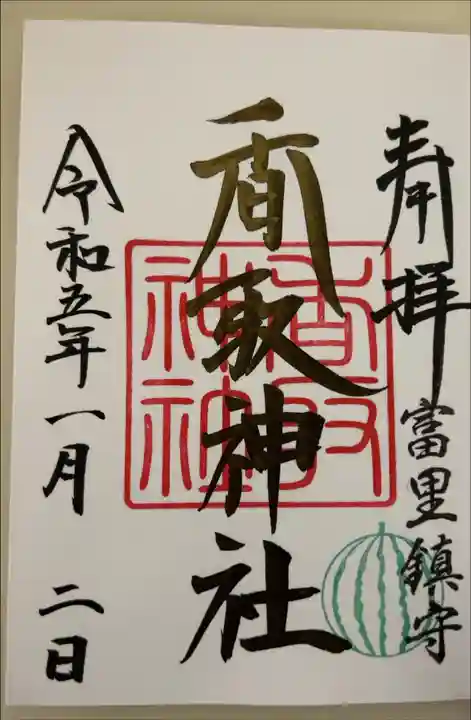 奉拝
富里鎮守
香取神社
香取神社
令和五年一月二日